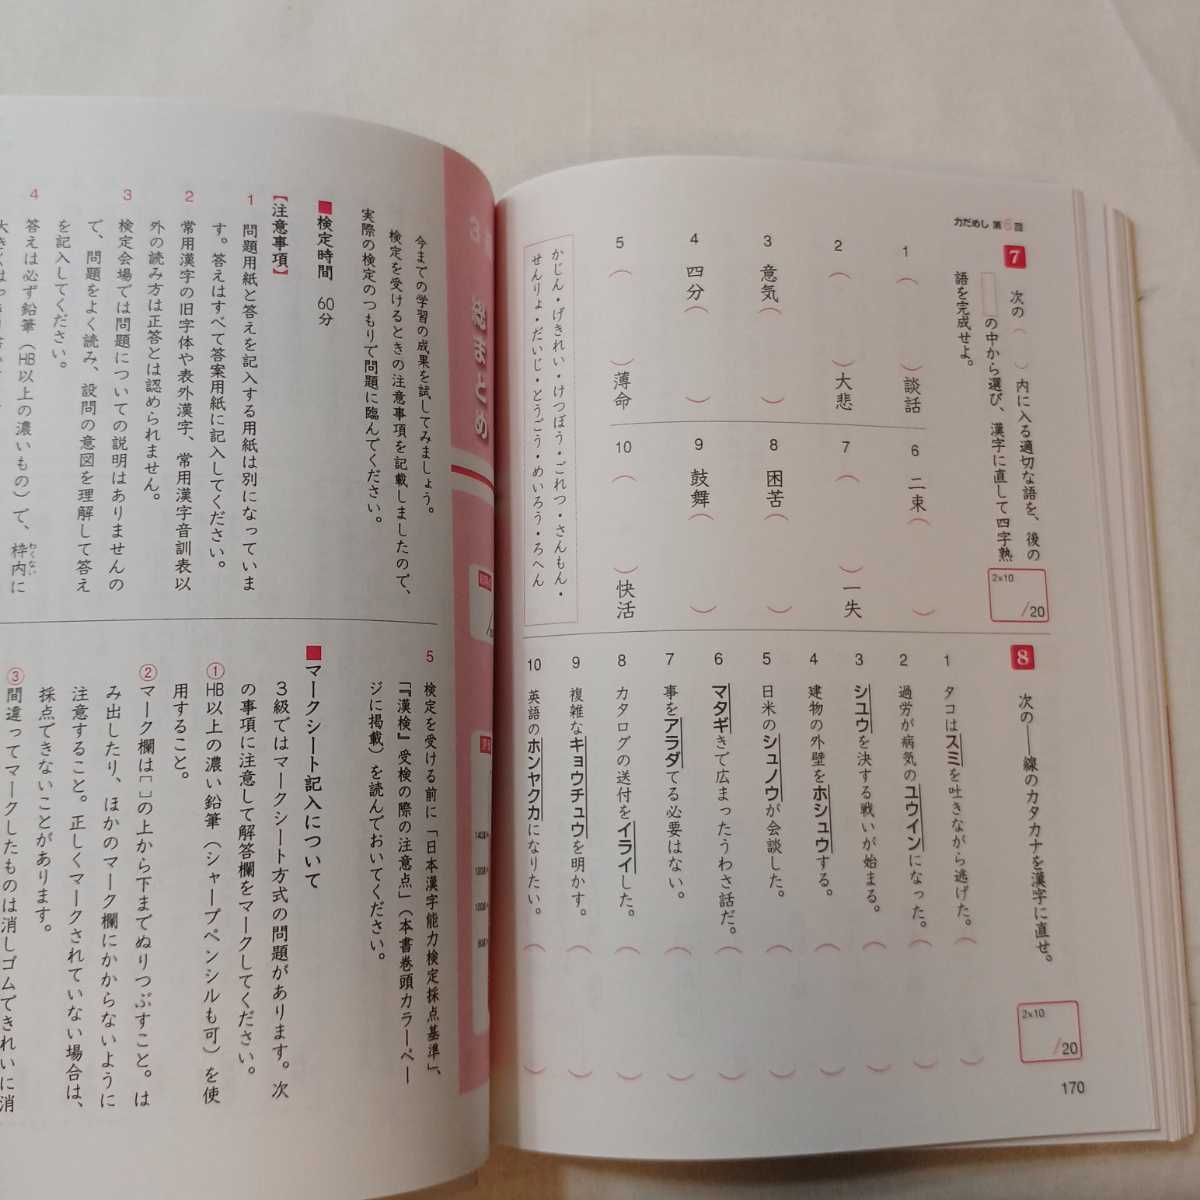 力だめし 第6回
7 次の（ ）内に入る適切な語を、後の
の中から選び、漢字に直して四字熟
語を完成せよ。
2×10
/20
1（ ）談話
2（ ）大悲
3 意気（ ）
4 四分（ ）
5（ ）薄命
6 二束（ ）
7（ ）一失
8 困苦（ ）
9 鼓舞（ ）
10（ ）快活
かじん・げきれい・けつぼう・ごれつ・さんもん・
せんりょ・だいじ・とうごう・めいろう・ろへん
8 次の――線のカタカナを漢字に直せ。
2×10
/20
1 タコはスミを吐きながら逃げた。（ ）
2 過労が病気のユウインになった。（ ）
3 シユウを決する戦いが始まる。（ ）
4 建物の外壁をホシュウする。（ ）
5 日米のシュノウが会談した。（ ）
6 マタギきで広まったうわさ話だ。（ ）
7 事をアラダてる必要はない。（ ）
8 カタログの送付をイライした。（ ）
9 複雑なキョウチュウを明かす。（ ）
10 英語のホンヤクカになりたい。（ ）
170
総まとめ
今までの学習の成果を試してみましょう。
検定を受けるときの注意事項を記載しましたので、
実際の検定のつもりで問題に臨んでください。
■検定時間 60分
【注意事項】
1 問題用紙と答えを記入する用紙は別になっていま
す。答えはすべて答案用紙に記入してください。
2 常用漢字の旧字体や表外漢字、常用漢字音訓表以
外の読み方は正答とは認められません。
3 検定会場では問題についての説明はありませんの
で、問題をよく読み、設問の意図を理解して答え
を記入してください。
4 答えは必ず鉛筆（HB以上の濃いもの）で、枠内に
わくない
5 検定を受ける前に「日本漢字能力検定採点基準」、
「『漢検』受検の際の注意点」（本書巻頭カラーペー
ジに掲載）を読んでおいてください。
■マークシート記入について
3級ではマークシート方式の問題があります。次
の事項に注意して解答欄をマークしてください。
①HB以上の濃い鉛筆（シャープペンシルも可）を使
用すること。
②マーク欄は［ ］の上から下までぬりつぶすこと。は
み出したり、ほかのマーク欄にかからないように
注意すること。正しくマークされていない場合は、
採点できないことがあります。
③間違ってマークしたものは消しゴムできれいに消